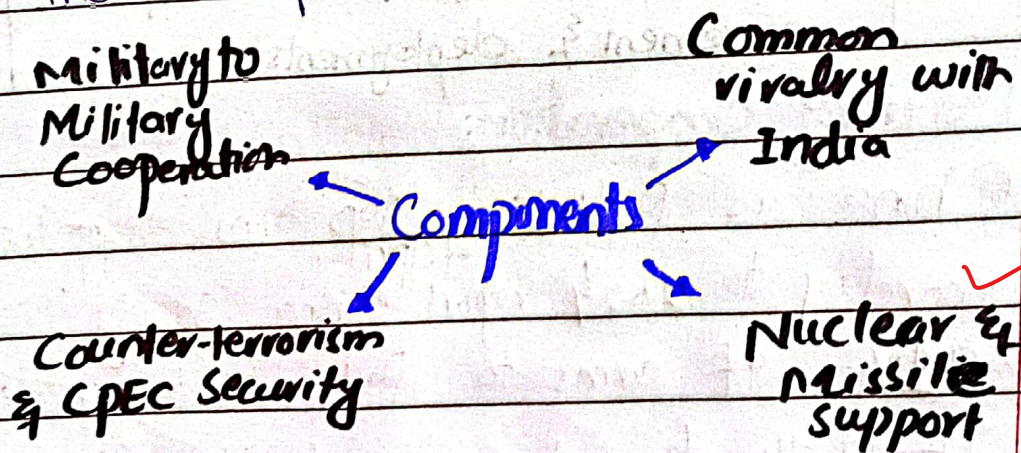 Military to
Military
Cooperation
Common
rivalry with
India
Components
Counter-terrorism
& CPEC Security
Nuclear &
Missile
support